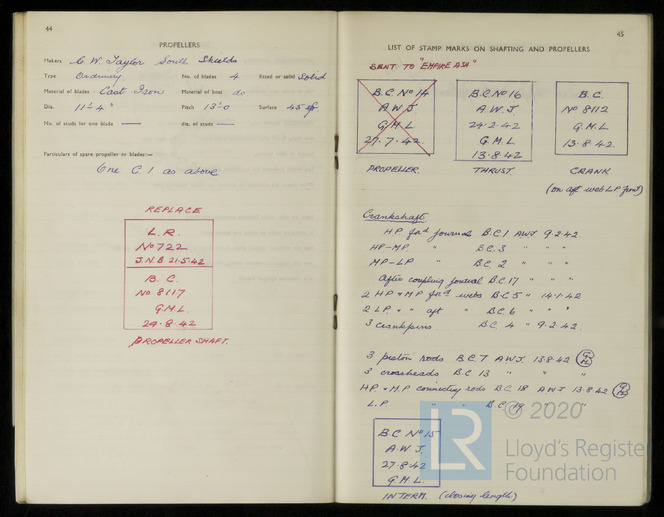 44
PROPELLERS
Makers C. W. Taylor South Shields
Type Ordinary No. of blades 4 fitted or solid Solid
Material of blades Cast Iron Material of boss do
Dia. 11'-4" Pitch 13'-0 Surface 45 sq.
No. of studs for one blade — dia. of studs —
Particulars of spare propeller or blades:—
One C.I as above
REPLACE
L.R.
No 722
J.N.B 21.5.42
B. C.
No 8117
G.M.L.
29.8.42
PROPELLER SHAFT.
45
LIST OF STAMP MARKS ON SHAFTING AND PROPELLERS
SENT TO "EMPIRE ASH"
B.C No 14
A W J.
G M L
27.7.42.
PROPELLER
B.C No 16
A.W J.
24.2.42
G.M.L
13.8.42
THRUST.
B. C.
No 8112
G.M.L
13.8.42.
CRANK
(on aft web L.P Jour)
Crankshaft.
HP ford journals B.C 1 AWJ 9.2.42.
HP-MP " B.C. 3 " " "
MP-LP " B.C. 2 " " "
After coupling journal B.C 17 " " "
2 HP & MP ford webs B.C 5 " 14.1.42
2 L.P. & " aft " B.C 6 " " "
3 crankpins B.C. 4 " 9.2.42
3 piston rods B.C 7 A.W.J. 13.8.42
3 crossheads B.C 13 " " "
HP & M.P connecting rods B.C 18 A W J 13.8.42
L.P " " B.C 19 " "
B.C No 15
A W J.
27.8.42
G M L.
INTERM. (closing length)
LR © 2020
Lloyd's Register
Foundation